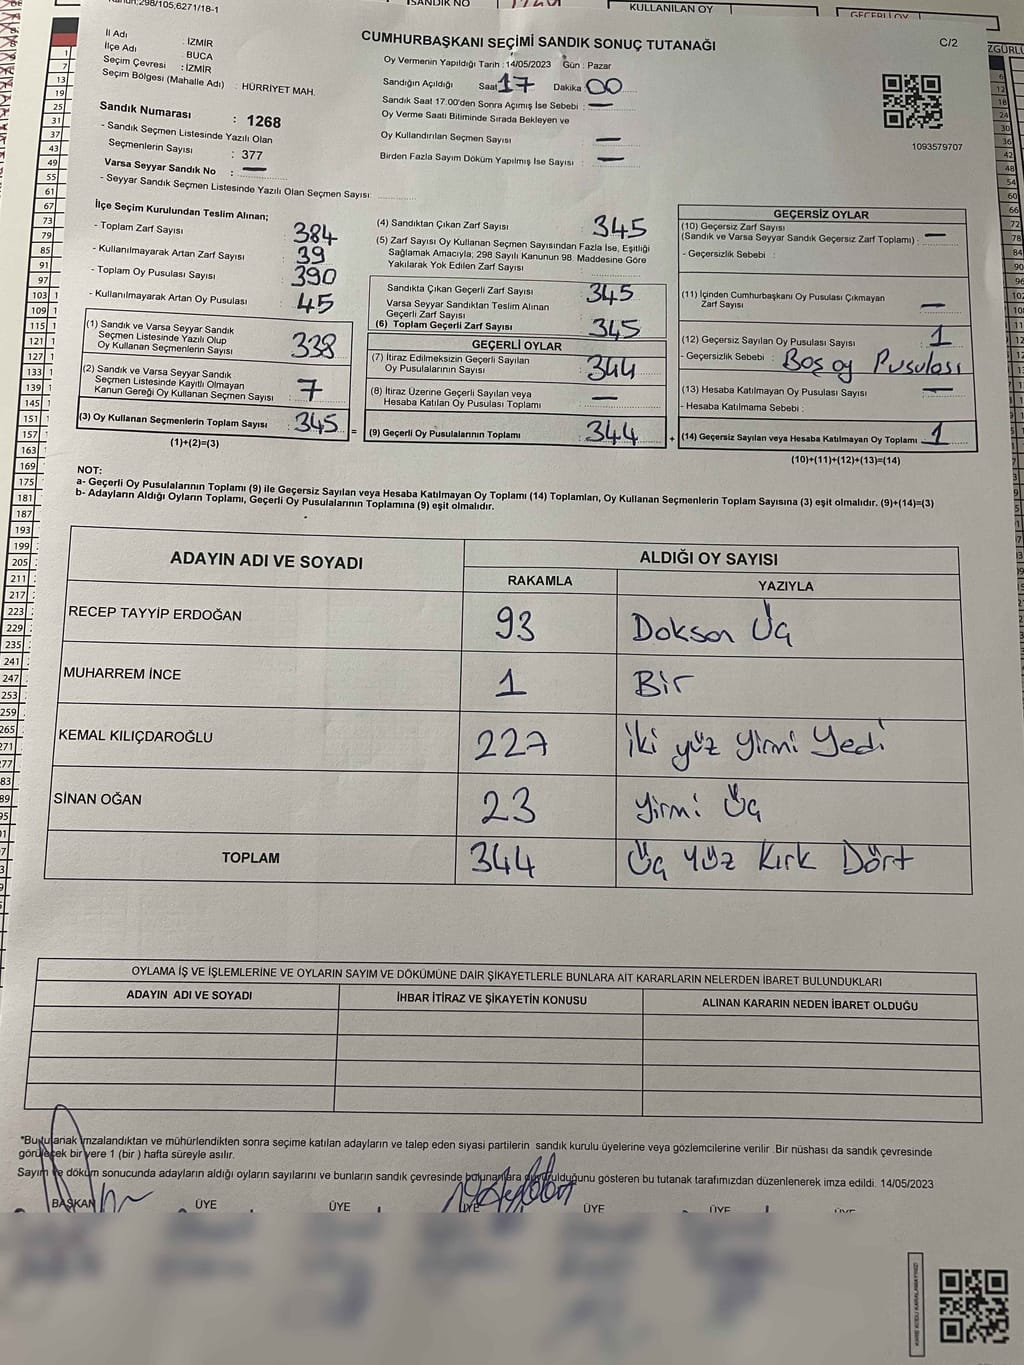 298/105,6271/18-1
SANDIK NO
KULLANILAN OY
GEÇERLİ OY
CUMHURBAŞKANI SEÇİMİ SANDIK SONUÇ TUTANAĞI
C/2
İl Adı : İZMİR
İlçe Adı BUCA
Seçim Çevresi : İZMİR
Seçim Bölgesi (Mahalle Adı) : HÜRRİYET MAH.
Oy Vermenin Yapıldığı Tarih : 14/05/2023 Gün : Pazar
Sandığın Açıldığı Saat 17 Dakika 00
Sandık Saat 17:00'den Sonra Açımış İse Sebebi : —
Oy Verme Saati Bitiminde Sırada Bekleyen ve
Oy Kullandırılan Seçmen Sayısı —
Birden Fazla Sayım Döküm Yapılmış İse Sayısı : —
1093579707
Sandık Numarası : 1268
- Sandık Seçmen Listesinde Yazılı Olan
Seçmenlerin Sayısı : 377
Varsa Seyyar Sandık No : —
- Seyyar Sandık Seçmen Listesinde Yazılı Olan Seçmen Sayısı:
İlçe Seçim Kurulundan Teslim Alınan;
- Toplam Zarf Sayısı 384
- Kullanılmayarak Artan Zarf Sayısı 39
- Toplam Oy Pusulası Sayısı 390
- Kullanılmayarak Artan Oy Pusulası 45
(1) Sandık ve Varsa Seyyar Sandık
Seçmen Listesinde Yazılı Olup
Oy Kullanan Seçmenlerin Sayısı 338
(2) Sandık ve Varsa Seyyar Sandık
Seçmen Listesinde Kayıtlı Olmayan
Kanun Gereği Oy Kullanan Seçmen Sayısı 7
(3) Oy Kullanan Seçmenlerin Toplam Sayısı 345
(1)+(2)=(3)
(4) Sandıktan Çıkan Zarf Sayısı 345
(5) Zarf Sayısı Oy Kullanan Seçmen Sayısından Fazla İse, Eşitliği
Sağlamak Amacıyla; 298 Sayılı Kanunun 98. Maddesine Göre
Yakılarak Yok Edilen Zarf Sayısı
Sandıkta Çıkan Geçerli Zarf Sayısı 345
Varsa Seyyar Sandıktan Teslim Alınan
Geçerli Zarf Sayısı
(6) Toplam Geçerli Zarf Sayısı 345
GEÇERLİ OYLAR
(7) İtiraz Edilmeksizin Geçerli Sayılan
Oy Pusulalarının Sayısı 344
(8) İtiraz Üzerine Geçerli Sayılan veya
Hesaba Katılan Oy Pusulası Toplamı —
= (9) Geçerli Oy Pusulalarının Toplamı 344
GEÇERSİZ OYLAR
(10) Geçersiz Zarf Sayısı
(Sandık ve Varsa Seyyar Sandık Geçersiz Zarf Toplamı) : —
- Geçersizlik Sebebi :
(11) İçinden Cumhurbaşkanı Oy Pusulası Çıkmayan
Zarf Sayısı —
(12) Geçersiz Sayılan Oy Pusulası Sayısı 1
- Geçersizlik Sebebi : Boş oy Pusulası
(13) Hesaba Katılmayan Oy Pusulası Sayısı —
- Hesaba Katılmama Sebebi :
+ (14) Geçersiz Sayılan veya Hesaba Katılmayan Oy Toplamı 1
(10)+(11)+(12)+(13)=(14)
NOT:
a- Geçerli Oy Pusulalarının Toplamı (9) ile Geçersiz Sayılan veya Hesaba Katılmayan Oy Toplamı (14) Toplamları, Oy Kullanan Seçmenlerin Toplam Sayısına (3) eşit olmalıdır. (9)+(14)=(3)
b- Adayların Aldığı Oyların Toplamı, Geçerli Oy Pusulalarının Toplamına (9) eşit olmalıdır.
ADAYIN ADI VE SOYADI ALDIĞI OY SAYISI
RAKAMLA YAZIYLA
RECEP TAYYİP ERDOĞAN 93 Doksan Üç
MUHARREM İNCE 1 Bir
KEMAL KILIÇDAROĞLU 227 İki yüz yirmi Yedi
SİNAN OĞAN 23 yirmi Üç
TOPLAM 344 Üç Yüz Kırk Dört
OYLAMA İŞ VE İŞLEMLERİNE VE OYLARIN SAYIM VE DÖKÜMÜNE DAİR ŞİKAYETLERLE BUNLARA AİT KARARLARIN NELERDEN İBARET BULUNDUKLARI
ADAYIN ADI VE SOYADI İHBAR İTİRAZ VE ŞİKAYETİN KONUSU ALINAN KARARIN NEDEN İBARET OLDUĞU
*Bu tutanak imzalandıktan ve mühürlendikten sonra seçime katılan adayların ve talep eden siyasi partilerin sandık kurulu üyelerine veya gözlemcilerine verilir .Bir nüshası da sandık çevresinde
görülecek bir yere 1 (bir ) hafta süreyle asılır.
Sayım ve döküm sonucunda adayların aldığı oyların sayılarını ve bunların sandık çevresinde bulunanlara duyurulduğunu gösteren bu tutanak tarafımızdan düzenlenerek imza edildi. 14/05/2023
BAŞKAN ÜYE ÜYE ÜYE ÜYE ÜYE ÜYE